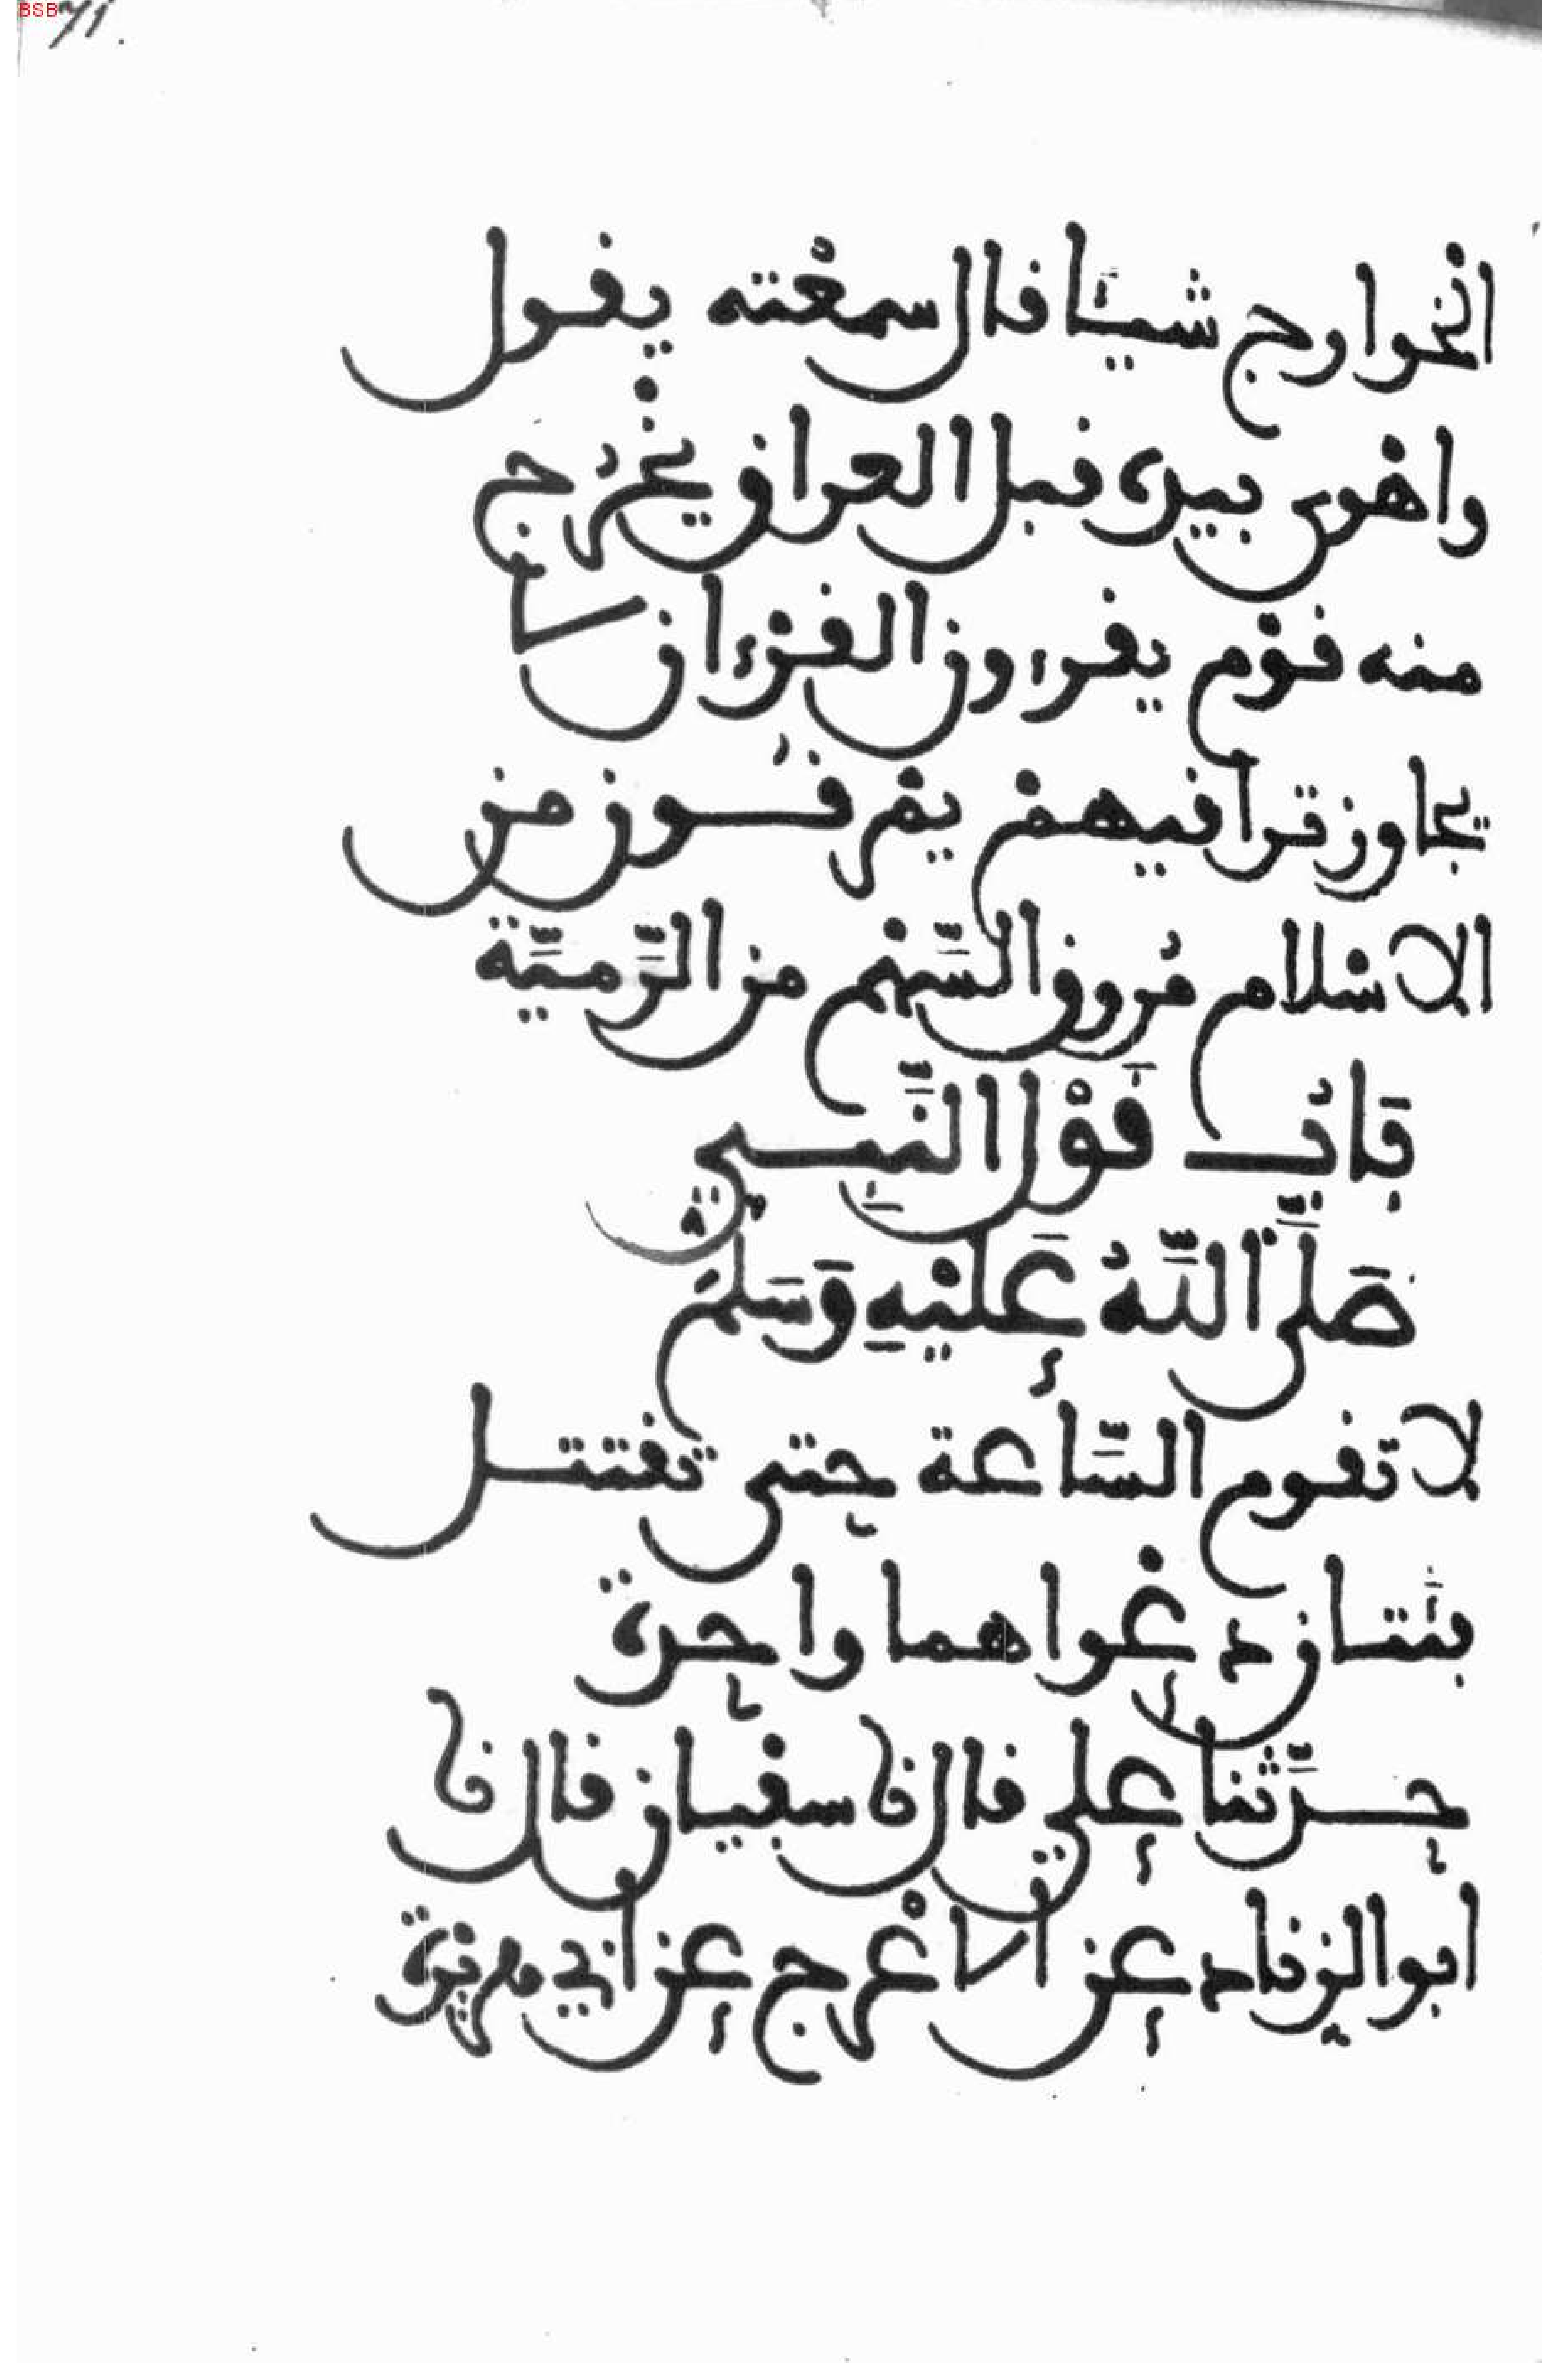 BSB
71.
الخوارج شيئا قال سمعته يقول
واهوى بيده قبل العراق يخرُج
منه قوْم يقرءون القرْءان لا
يجاوز تراقيهمْ يمْرقُون من
الاسْلام مُروق السَّهْم من الرَّميَّة
بَابُ قَوْل النَّبِي
صَلَّى اللَّهُ عَلَيْهِ وَسَلمَ
لا تقوم السَّاعة حتى تقتتل
فئتان دعْواهما واحدة
حدَّثنا علي قال نا سفْيان قال نا
ابو الزناد عن الاعْرج عن ابي هريرة